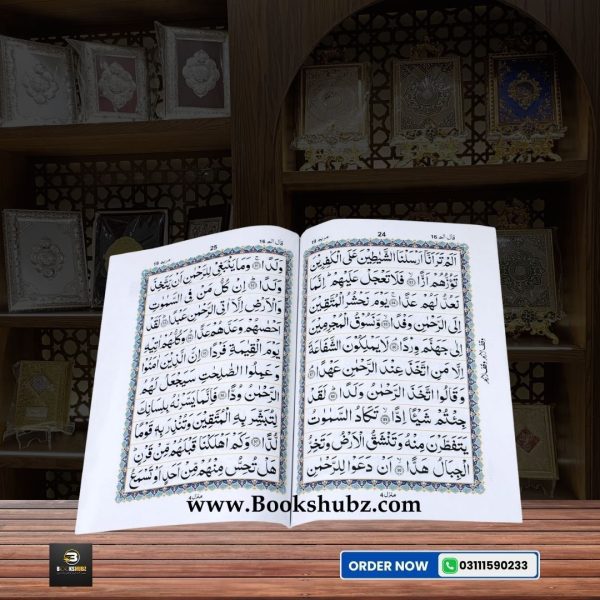 قَالَ اَلَمْ 16 24 مريم 19
اَلَمْ تَرَ اَنَّاۤ اَرْسَلْنَا الشَّيٰطِيْنَ عَلَى الْكٰفِرِيْنَ
تَؤُزُّهُمْ اَزًّا فَلَا تَعْجَلْ عَلَيْهِمْ اِنَّمَا
نَعُدُّ لَهُمْ عَدًّا يَوْمَ نَحْشُرُ الْمُتَّقِيْنَ
اِلَى الرَّحْمٰنِ وَفْدًا وَّنَسُوْقُ الْمُجْرِمِيْنَ
اِلٰى جَهَنَّمَ وِرْدًا لَا يَمْلِكُوْنَ الشَّفَاعَةَ
اِلَّا مَنِ اتَّخَذَ عِنْدَ الرَّحْمٰنِ عَهْدًا
وَقَالُوا اتَّخَذَ الرَّحْمٰنُ وَلَدًا لَقَدْ
جِئْتُمْ شَيْئًا اِدًّا تَكَادُ السَّمٰوٰتُ
يَتَفَطَّرْنَ مِنْهُ وَتَنْشَقُّ الْاَرْضُ وَتَخِرُّ
الْجِبَالُ هَدًّا اَنْ دَعَوْا لِلرَّحْمٰنِ
منزل 4
قَالَ اَلَمْ 16 25 مريم 19
وَلَدًا وَمَا يَنْۢبَغِيْ لِلرَّحْمٰنِ اَنْ يَّتَّخِذَ
وَلَدًا اِنْ كُلُّ مَنْ فِي السَّمٰوٰتِ
وَالْاَرْضِ اِلَّاۤ اٰتِي الرَّحْمٰنِ عَبْدًا لَقَدْ
اَحْصٰهُمْ وَعَدَّهُمْ عَدًّا وَكُلُّهُمْ اٰتِيْهِ
يَوْمَ الْقِيٰمَةِ فَرْدًا اِنَّ الَّذِيْنَ اٰمَنُوْا
وَعَمِلُوا الصّٰلِحٰتِ سَيَجْعَلُ لَهُمُ
الرَّحْمٰنُ وُدًّا فَاِنَّمَا يَسَّرْنٰهُ بِلِسَانِكَ
لِتُبَشِّرَ بِهِ الْمُتَّقِيْنَ وَتُنْذِرَ بِهٖ قَوْمًا
لُّدًّا وَكَمْ اَهْلَكْنَا قَبْلَهُمْ مِّنْ قَرْنٍ
هَلْ تُحِسُّ مِنْهُمْ مِّنْ اَحَدٍ اَوْ تَسْمَعُ
منزل 4
www.Bookshubz.com
BOOKSHUBZ
ORDER NOW 03111590233